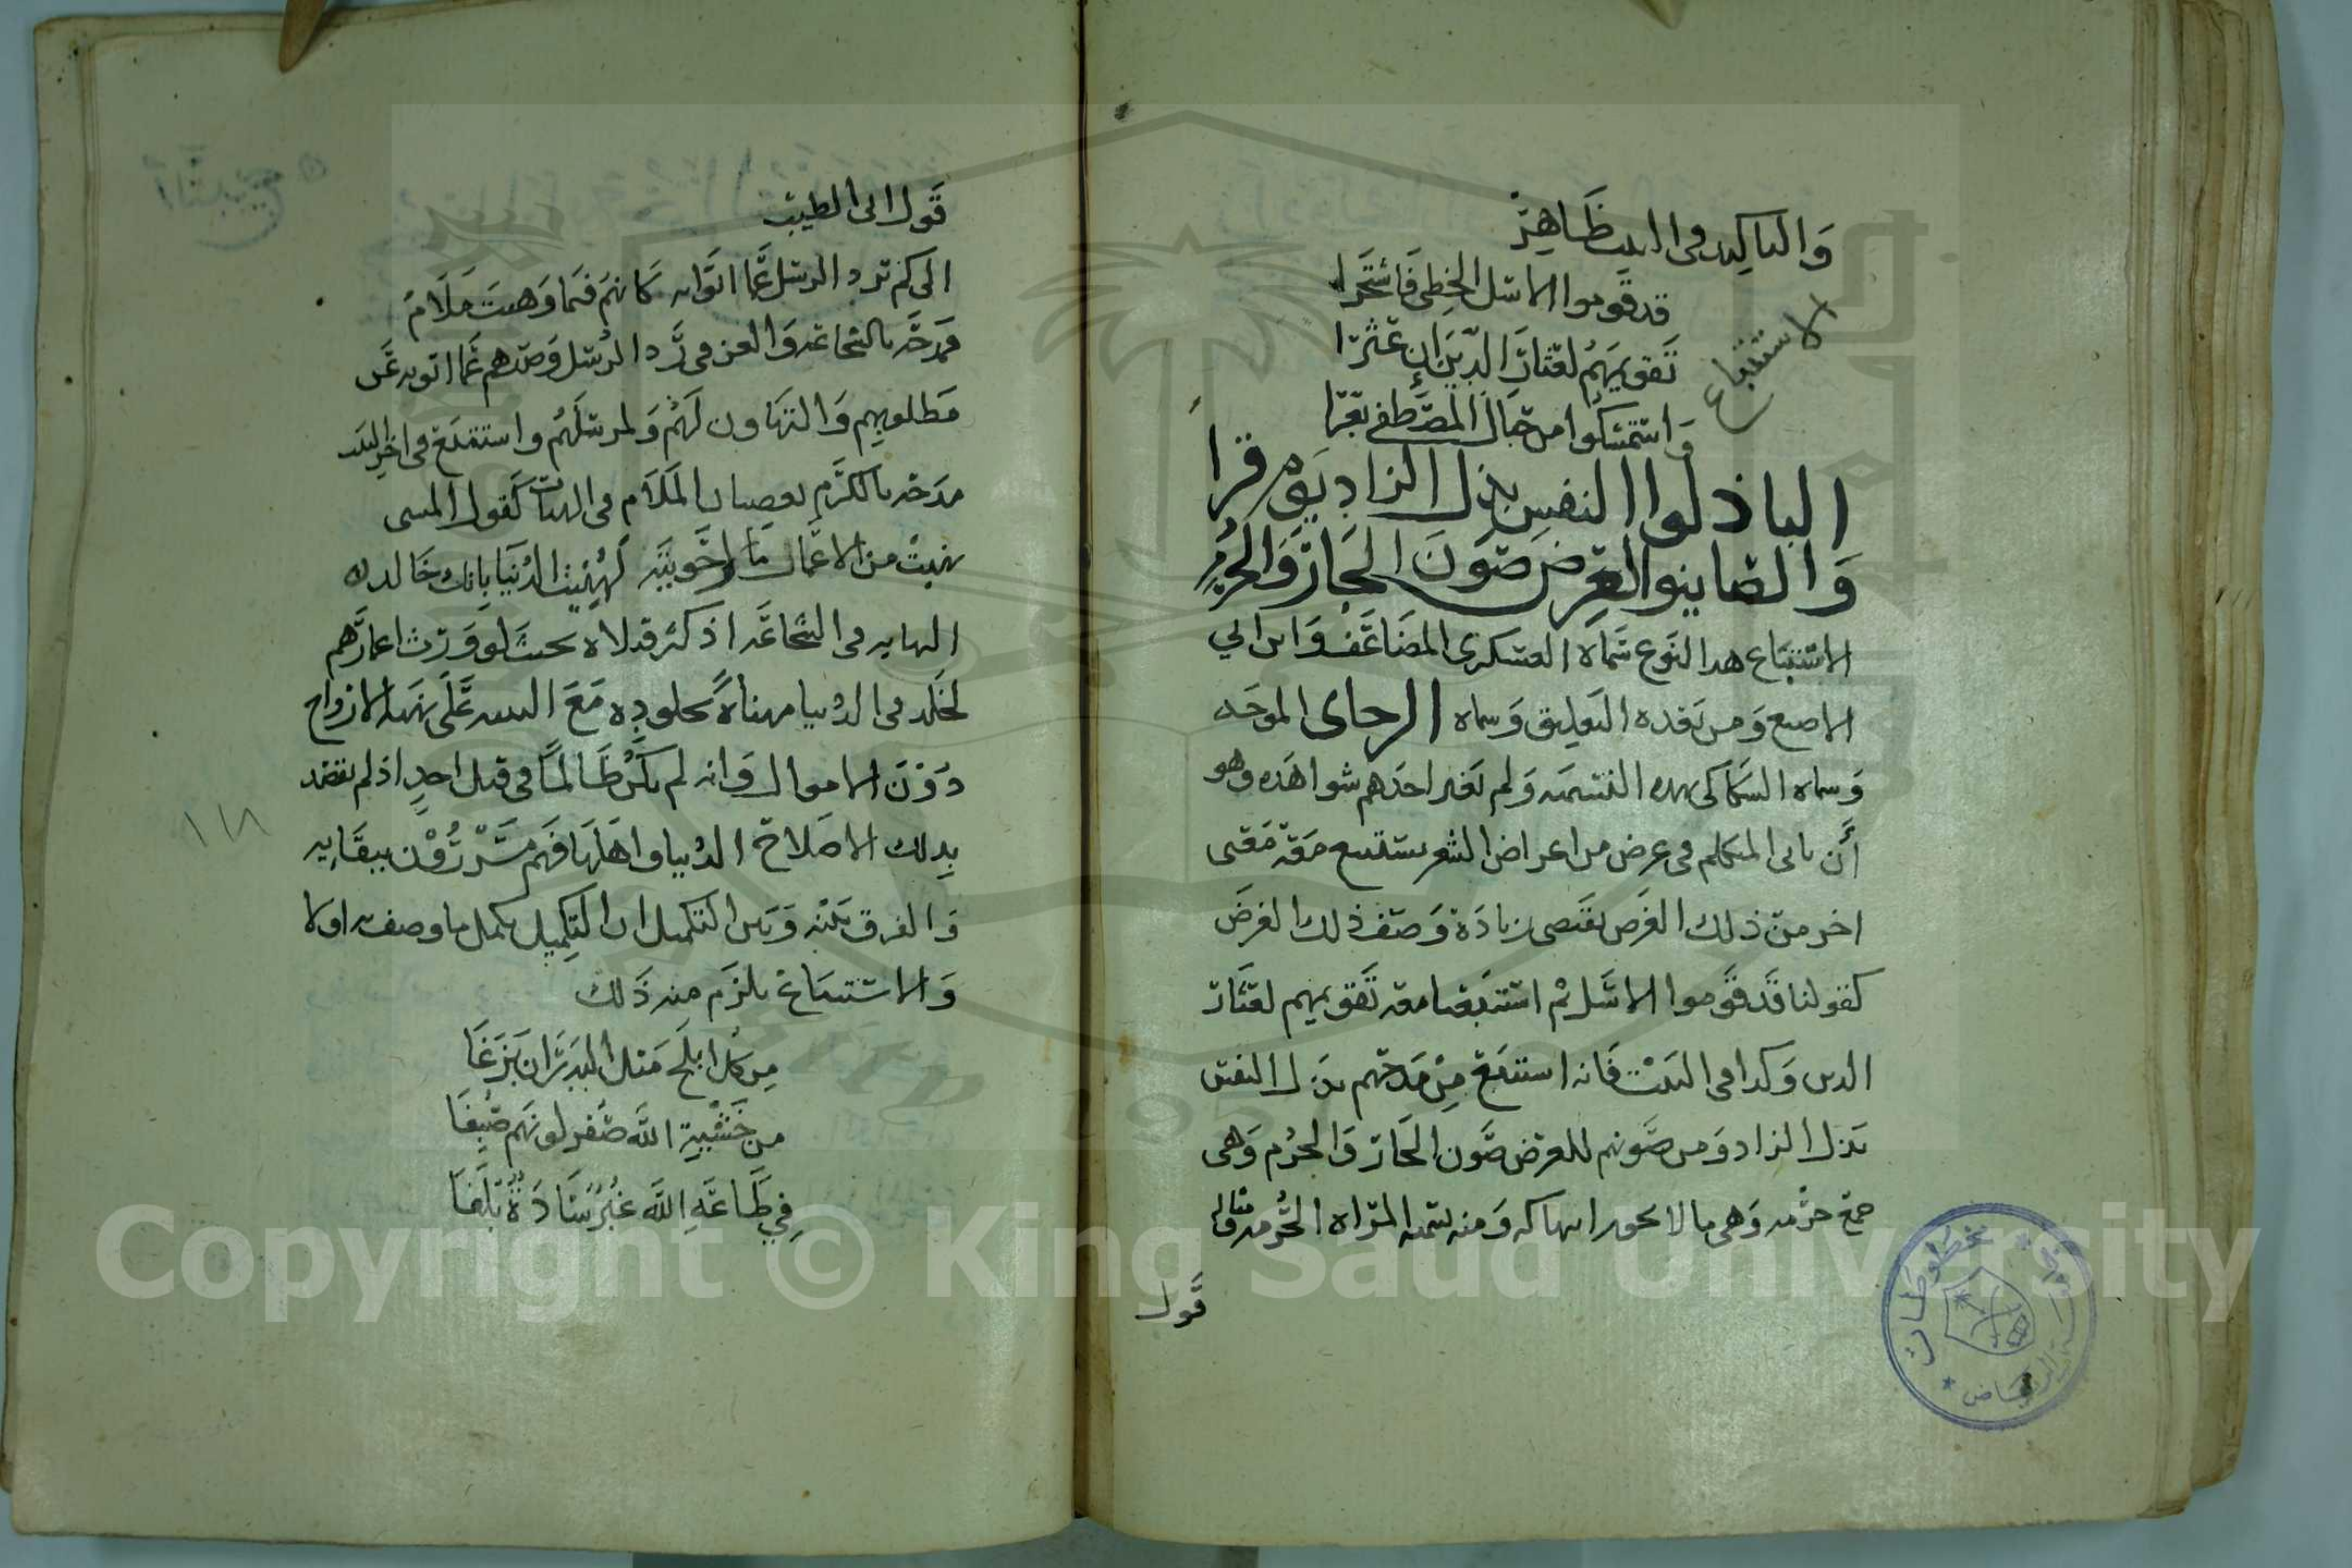 والتاكيد في البيت ظاهر
قد قوموا الاسل الخطي فاشتجرا
تقويمهم لقناة الدين ان عثرا
واستمسكوا من حبال المصطفى بعرا
الاستتباع
الباذلوا النفس بذل الزاد يوم قرا
والصاينوا العرض صون الجار والحرم
الاستتباع هدا النوع سماه العسكرى المضاعف وابن ابي
الاصبع ومن بعده التعليق وسماه الزنجاى الموجه
وسماه السكاكى بهده التسميه ولم تغير احدهم شواهده وهو
أن ياتى المتكلم فى عرض من اعراض الشعر يستتبع معه معنى
اخر من ذلك الغرض يقتضى زيادة وصف ذلك الغرض
كقولنا قد قوموا الاسل ثم استتبعنا معه تقويمهم لقناة
الدين وكدا فى البيت فانه استتبع من مدحهم بذل النفس
بذل الزاد ومن صونهم للعرض صون الجار والحرم وهى
جمع حرمه وهى ما لا يحور انتهاكه ومنه سميه المراه الحرمه مثاله
قول
قول ابى الطيب
الى كم ترد الرسل عما اتوا به كانهم فيما وهبت ملام
فمدحه بالشجاعه والعز فى رد الرسل وصدهم عما اتو به عن
مطلوبهم والتهاون لهم ولمرسلهم واستتبع فى اخر البيت
مدحه بالكرم بعصيان الملام فى الهبات كقول المتنبى
نهبت من الاعمار ما لو حويته لهنيت الدنيا بانك خالد
النهايه فى الشجاعه اذ كثر قتلاه بحيث لو ورث اعمارهم
لخلد فى الدنيا مهناة بخلوده مع التنبيه على نهبه الارواح
دون الاموال وانه لم يكن ظالما فى قتل احد اذ لم يقصد
بدلك الا صلاح الدنيا واهلها فهم مسرورن ببقايه
والفرق بينه وبين التكميل ان التكميل يكمل ما وصف به اولا
والاستتباع يلزم منه ذلك
من كل ابلج مثل البدر ان بزغا
من خشية الله صفر لونهم صبغا
في طاعة الله غبر سادة بلغا
١١٨